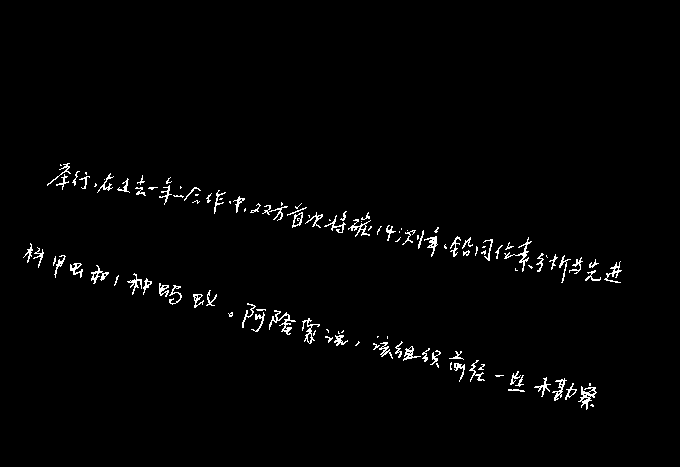 举行,在过去一年合作中,双方首次将碳14测年、铅同位素分析与先进
科甲虫和1种蚂蚁。阿隆索说,该组织前经一些未勘察